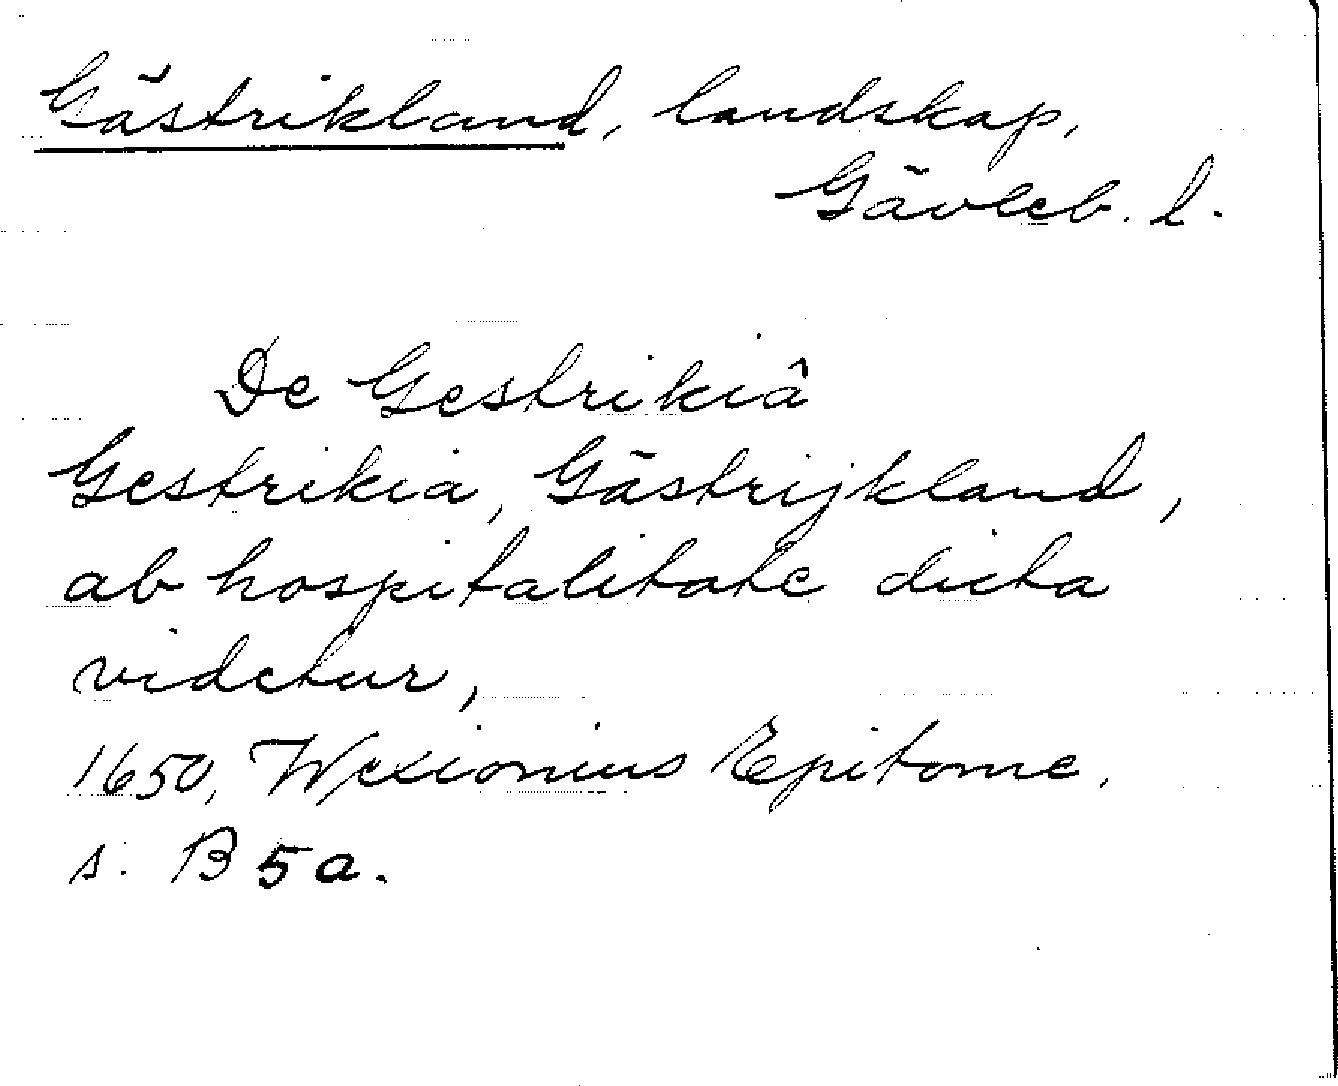 Gästrikland, landskap,
Gävleb. l.
De Gestrikiâ
Gestrikia, Gästrijkland,
ab hospitalitate dicta
videtur,
1650, Wexionius Epitome.
s. B 5 a.